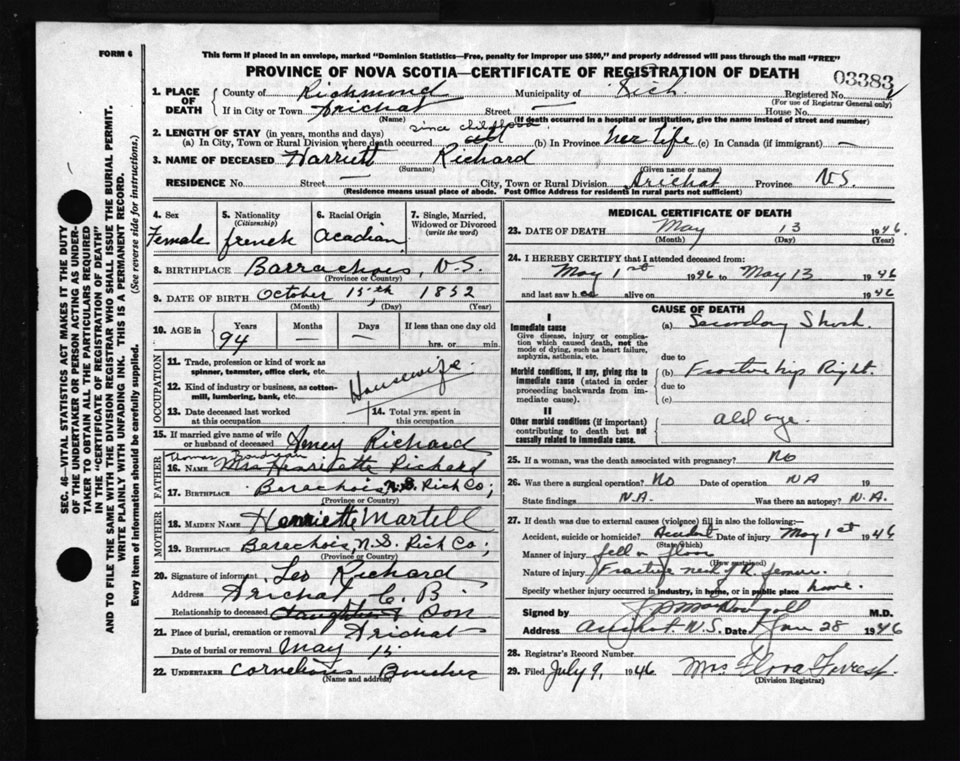 FORM 6
This form if placed in an envelope, marked "Dominion Statistics—Free, penalty for improper use $300," and properly addressed will pass through the mail "FREE"
PROVINCE OF NOVA SCOTIA—CERTIFICATE OF REGISTRATION OF DEATH
03383
1. PLACE OF DEATH
County of Richmond Municipality of Rich. Registered No.
(For use of Registrar General only)
If in City or Town Arichat Street — House No.
(Name) (If death occurred in a hospital or institution, give the name instead of street and number)
2. LENGTH OF STAY (in years, months and days)
since childhood
(a) In City, Town or Rural Division where death occurred (b) In Province her life (c) In Canada (if immigrant) —
3. NAME OF DECEASED Harriett Richard
(Surname) (Given name or names)
RESIDENCE No. Street — City, Town or Rural Division Arichat Province N.S.
(Residence means usual place of abode. Post Office Address for residents in rural parts not sufficient)
SEC. 46—VITAL STATISTICS ACT MAKES IT THE DUTY
OF THE UNDERTAKER OR PERSON ACTING AS UNDER-
TAKER TO OBTAIN ALL THE PARTICULARS REQUIRED
IN THE "CERTIFICATE OF REGISTRATION OF DEATH"
AND TO FILE THE SAME WITH THE DIVISION REGISTRAR WHO SHALL ISSUE THE BURIAL PERMIT.
WRITE PLAINLY WITH UNFADING INK. THIS IS A PERMANENT RECORD.
Every item of information should be carefully supplied. (See reverse side for instructions.)
4. Sex
Female
5. Nationality
(Citizenship)
french
6. Racial Origin
Acadian
7. Single, Married, Widowed or Divorced
(write the word)
8. BIRTHPLACE Barrachois, N.S.
(Province or Country)
9. DATE OF BIRTH October 15th 1852
(Month) (Day) (Year)
10. AGE in Years Months Days If less than one day old
94 — — hrs. or min.
OCCUPATION
11. Trade, profession or kind of work as
spinner, teamster, office clerk, etc.
12. Kind of industry or business, as cotton-
mill, lumbering, bank, etc.
Housewife
13. Date deceased last worked
at this occupation
14. Total yrs. spent in
this occupation
15. If married give name of wife
or husband of deceased Richard
FATHER
16. NAME Mrs Henriette Richard
17. BIRTHPLACE Barachois N.S. Rich Co;
(Province or Country)
MOTHER
18. MAIDEN NAME Henriette Martell
19. BIRTHPLACE Barachois, N.S. Rich Co;
(Province or Country)
20. Signature of informant Leo Richard
Address Arichat C. B.
Relationship to deceased daughter Son
21. Place of burial, cremation or removal Arichat
Date of burial or removal May 15
22. UNDERTAKER Cornelious
(Name and address)
MEDICAL CERTIFICATE OF DEATH
23. DATE OF DEATH May 13 1946.
(Month) (Day) (Year)
24. I HEREBY CERTIFY that I attended deceased from:
May 1st 1946 to May 13 1946
and last saw h er alive on 1946
CAUSE OF DEATH
I
Immediate cause
Give disease, injury or complica-
tion which caused death, not the
mode of dying, such as heart failure,
asphyxia, asthenia, etc.
(a) Secondary Shock
due to
Morbid conditions, if any, giving rise to
immediate cause (stated in order
proceeding backwards from im-
mediate cause).
(b) Fracture hip Right.
due to
(c)
II
Other morbid conditions (if important)
contributing to death but not
causally related to immediate cause.
old age.
25. If a woman, was the death associated with pregnancy? No
26. Was there a surgical operation? No Date of operation NA 19
State findings N.A. Was there an autopsy? N.A.
27. If death was due to external causes (violence) fill in also the following:—
Accident, suicide or homicide? Accident Date of injury May 1st 1946
(State which)
Manner of injury fell on floor
(How sustained)
Nature of injury Fracture neck of R. femur.
Specify whether injury occurred in industry, in home, or in public place home.
Signed by M.D.
Address Arichat N.S. Date 28 1946
28. Registrar's Record Number
29. Filed July 9, 1946 Mrs Flora
(Division Registrar)